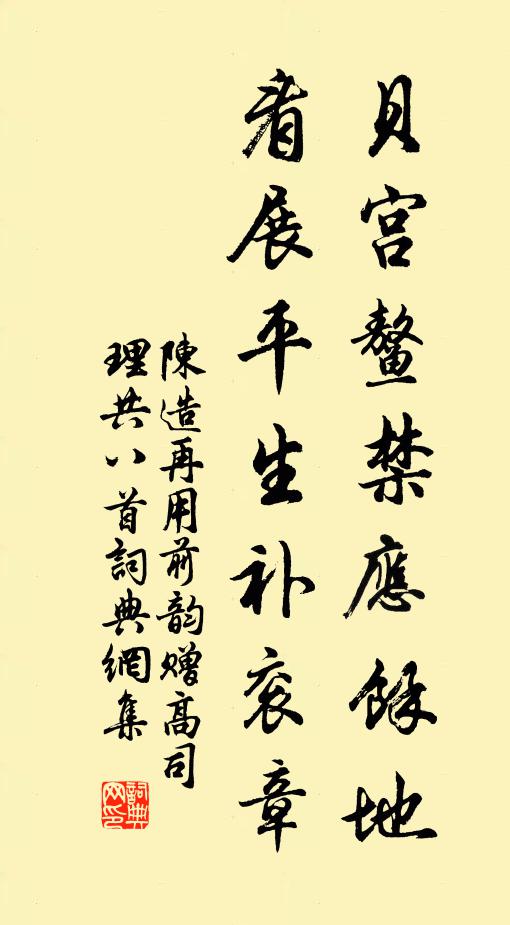 貝宮鳌禁應餘地
看展平生补衮章
陳造再用前韵贈高司
理共八首詞典網集
詞典网印